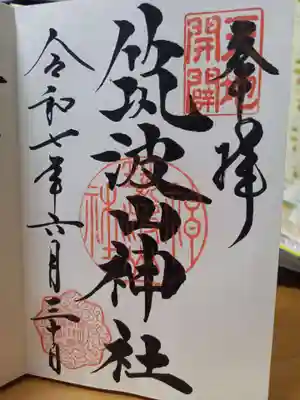 奉拝
天地開闢
筑波山神社
令和七年六月三十日